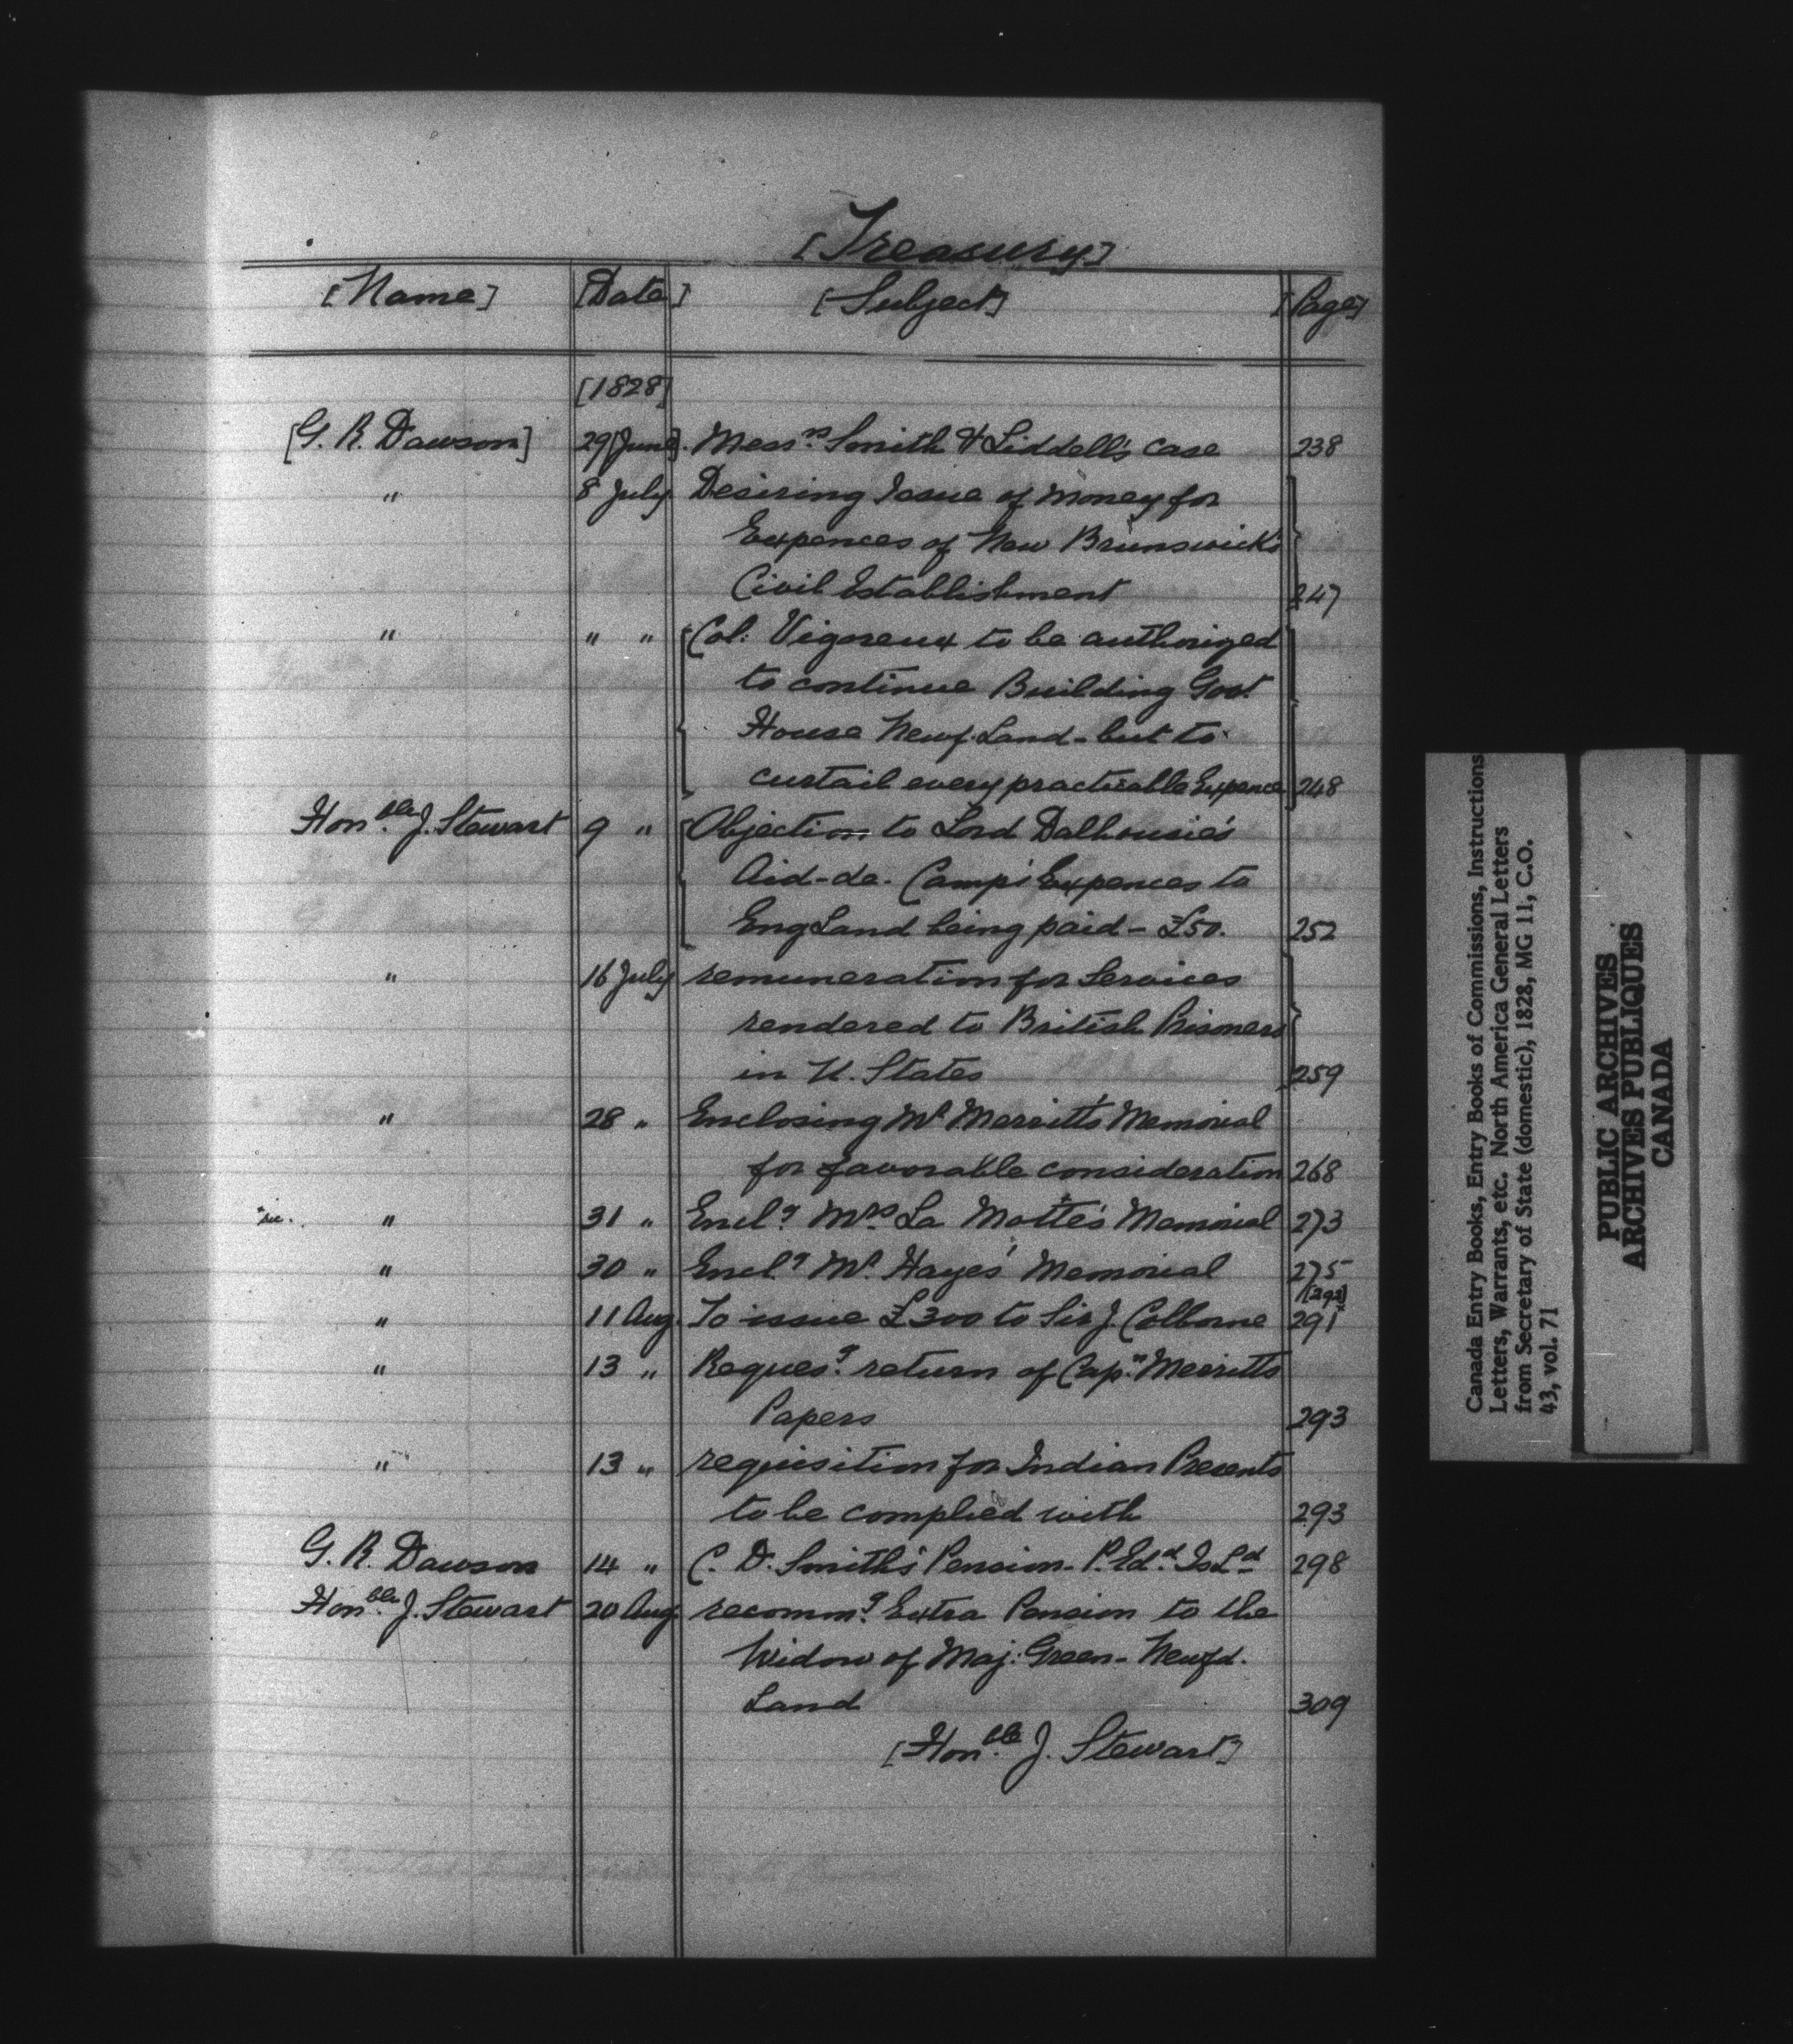 [Treasury]
[Name] [Date] [Subject] [Page]
[1828]
[G. R. Dawson] 29 [June]. Mess.rs Smith & Liddell's case 238
" 8 July Desiring Issue of Money for
Expences of New Brunswick's
Civil Establishment 247
" " " Col: Vigoreux to be authorized
to continue Building Govt
House Newf.Land - but to
curtail every practicable Expence 248
Hon.ble J. Stewart 9 " Objection to Lord Dalhousie's
Aid-de-Camp's Expences to
EngLand being paid - £50. 252
" 16 July remuneration for Services
rendered to British Prisoners
in U. States 259
" 28 " Enclosing Mr Merritt's Memorial
for favorable consideration 268
sic. " 31 " Encl.g Mrs La Motte's Memorial 273
" 30 " Encl.g Mr. Hayes' Memorial 275
(292)
" 11 Aug. To issue £300 to Sir J. Colborne 291
" 13 " Reques.g return of Cap.n Merritts
Papers 293
" 13 " requisition for Indian Presents
to be complied with 293
G. R. Dawson 14 " C. D. Smith's Pension - P. Ed.d Is.Ld 298
Hon.ble J. Stewart 20 Aug. recomm.g Extra Pension to the
Widow of Maj: Green - Newfd.
Land 309
[Hon.ble J. Stewart]
Canada Entry Books, Entry Books of Commissions, Instructions
Letters, Warrants, etc. North America General Letters
from Secretary of State (domestic), 1828, MG 11, C.O.
43, vol. 71
PUBLIC ARCHIVES
ARCHIVES PUBLIQUES
CANADA